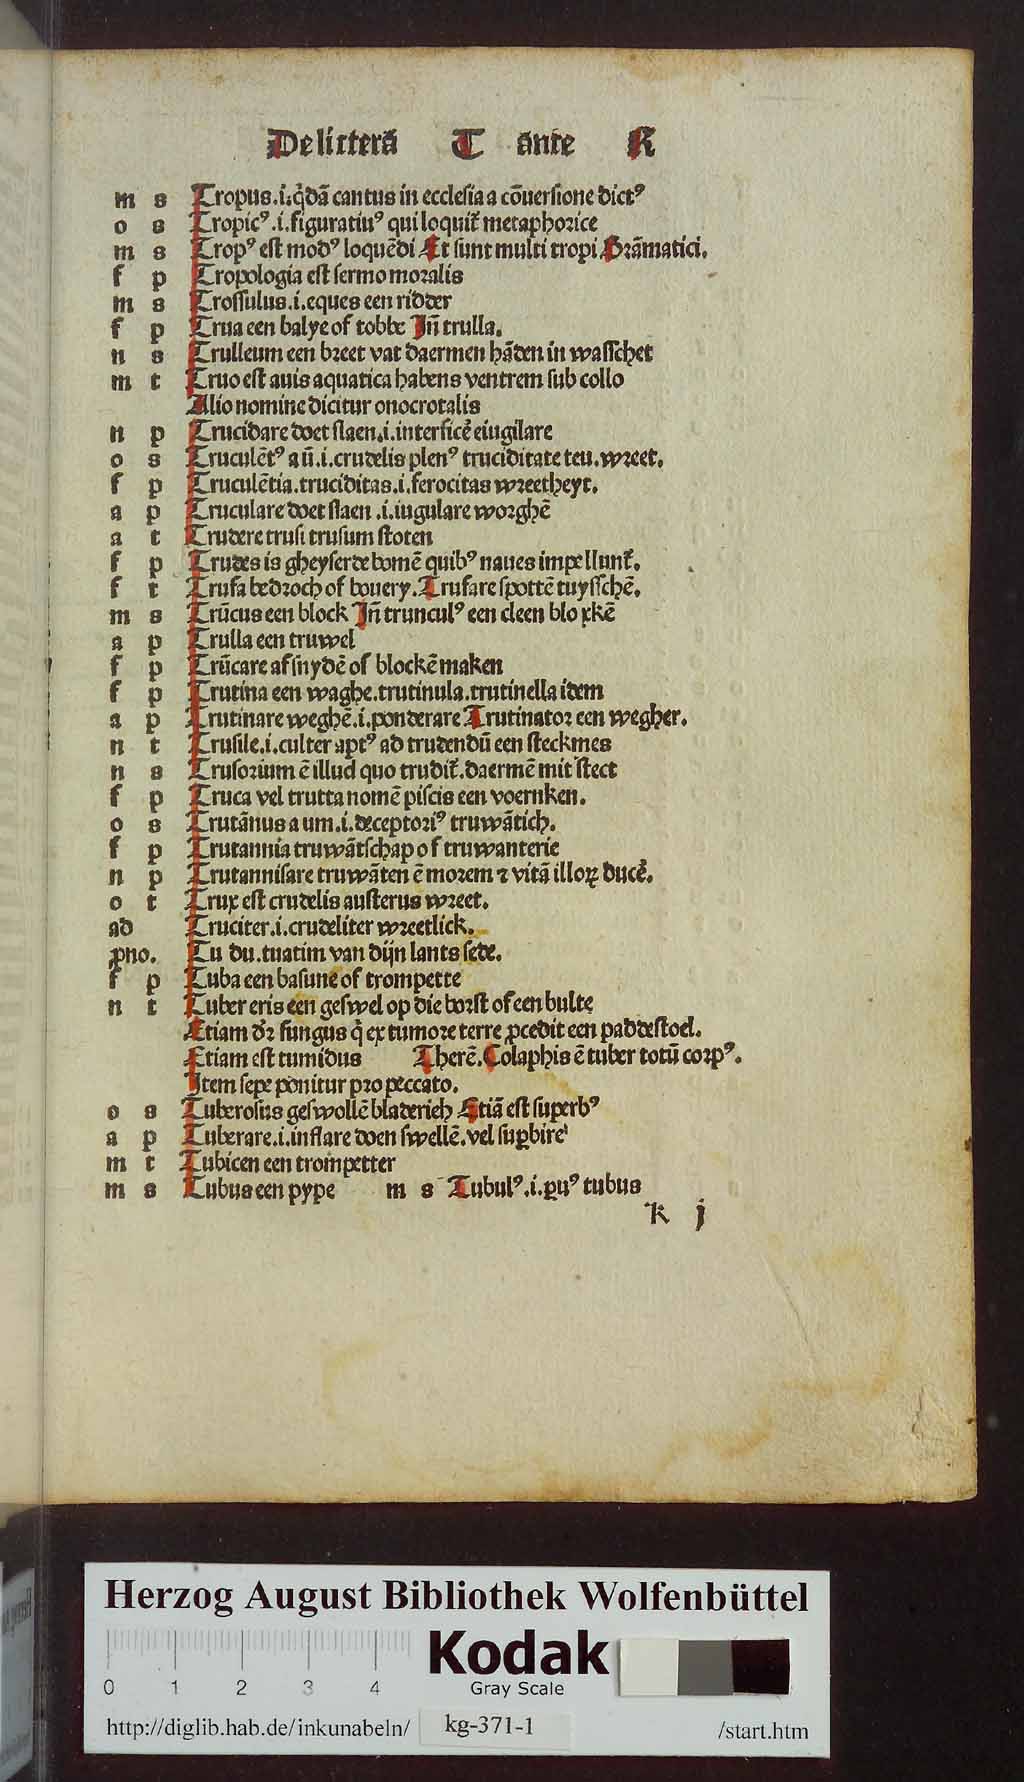 De litterā T ānte R
m s Tropus .i. q̇dā cantus in ecclesia a cōuersione dictꝰ
o s Tropicꝰ .i. figuratiuꝰ qui loquit᷑ metaphorice
m s Tropꝰ est modꝰ loquēdi Et sunt multi tropi Grāmatici.
f p Tropologia est sermo moralis
m s Trossulus .i. eques een ridder
f p Trua een balye of tobbe Jn̄ trulla.
n s Trulleum een breet vat daermen hāden in wasschet
m t Truo est auis aquatica habens ventrem sub collo
Alio nomine dicitur onocrotalis
n p Trucidare doet slaen .i. interficē eiugilare
o s Truculētꝰ a ū .i. crudelis plenꝰ truciditate teu. wreet.
f p Truculētia. truciditas .i. ferocitas wreetheyt.
a p Truculare doet slaen .i. iugulare worghē
a t Trudere trusi trusum stoten
f p Trudes is gheyserde bomē quibꝰ naues impellunt᷑.
f t Trufa bedroch of bouery. Trufare spottē tuysschē.
m s Trūcus een block Jn̄ trunculꝰ een cleen bloxkē
a p Trulla een truwel
f p Trūcare af snydē of blockē maken
f p Trutina een waghe. trutinula. trutinella idem
a p Trutinare weghē .i. ponderare Trutinator een wegher.
n t Trusile .i. culter aptꝰ ad trudendū een steckmes
n s Trusorium ē illud quo trudit᷑. daermē mit stect
f p Truca vel trutta nomē piscis een voernken.
o s Trutānus a um .i. deceptoriꝰ truwātich.
f p Trutannia truwātschap of truwanterie
n p Trutannisare truwāten ē morem ⁊ vitā illoꝝ ducē.
o t Trux est crudelis austerus wreet.
ad Truciter .i. crudeliter wreetlick.
ꝓno. Tu du. tuatim van dijn lants sede.
f p Tuba een basune of trompette
n t Tuber eris een geswel op die borst of een bulte
Etiam dr̄ fungus q̄ ex tumore terre ꝓcedit een paddestoel.
Etiam est tumidus Therē. Colaphis ē tuber totū corpꝰ.
Jtem sepe ponitur pro peccato.
o s Tuberosus geswollē bladerich Etiā est superbꝰ
a p Tuberare .i. inflare doen swellē. vel suꝑbire
m t Tubicen een trompetter
m s Tubus een pype m s Tubulꝰ .i. ꝑuꝰ tubus
k j
Herzog August Bibliothek Wolfenbüttel
Kodak
Gray Scale
0 1 2 3 4
http://diglib.hab.de/inkunabeln/ kg-371-1 /start.htm